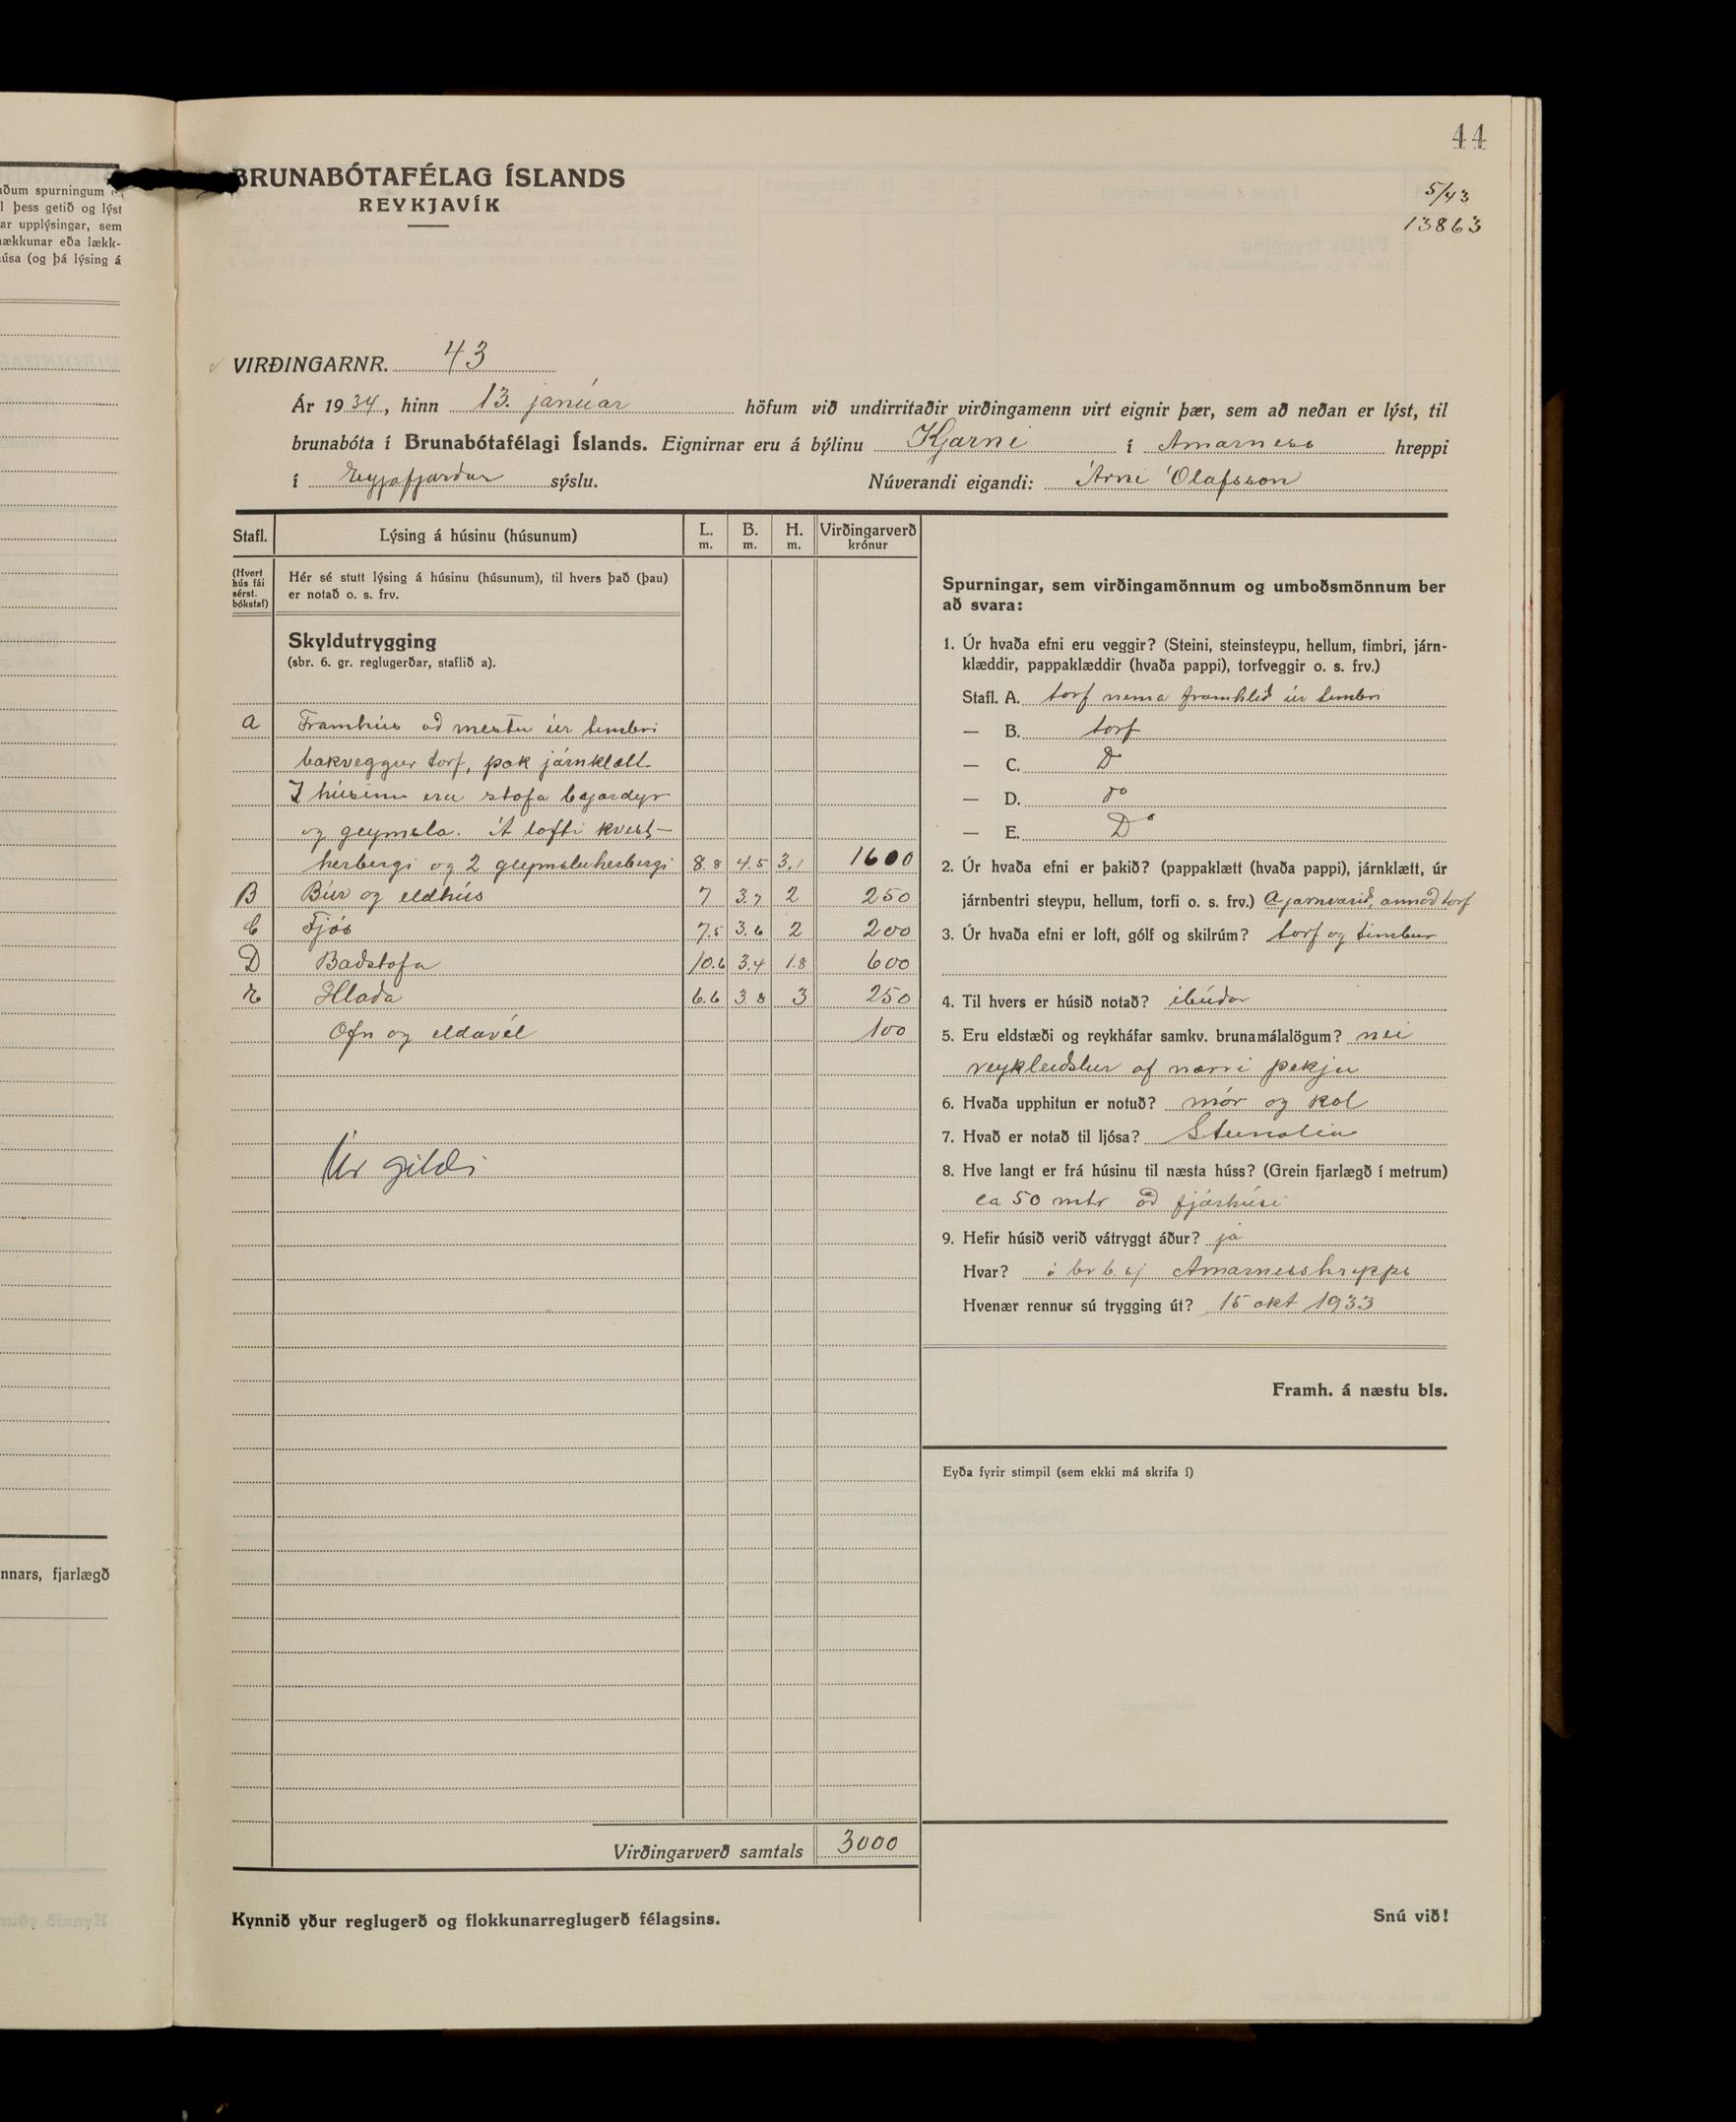 44
BRUNABÓTAFÉLAG ÍSLANDS
REYKJAVÍK
5/43
13863
uðum spurningum
l þess getið og lýst
ar upplýsingar, sem
ækkunar eða lækk-
úsa (og þá lýsing á
nnars, fjarlægð
VIRÐINGARNR. 43
Ár 1934, hinn 13. janúar höfum við undirritaðir virðingamenn virt eignir þær, sem að neðan er lýst, til
brunabóta í Brunabótafélagi Íslands. Eignirnar eru á býlinu Kjarni í Arnarness hreppi
í Eyjafjarðar sýslu. Núverandi eigandi: Árni Ólafsson
Stafl. Lýsing á húsinu (húsunum) L. m. B. m. H. m. Virðingarverð krónur
(Hvert hús fái sérst. bókstaf)
Hér sé stutt lýsing á húsinu (húsunum), til hvers það (þau)
er notað o. s. frv.
Skyldutrygging
(sbr. 6. gr. reglugerðar, staflið a).
A Framhús að mestu úr timbri
bakveggur torf, þak járnklætt
I húsinu eru stofa bæjardyr
og geymsla. Á lofti kvist-
herbergi og 2 geymsluherbergi 8.8 4.5 3.1 1600
B Búr og eldhús 7 3.7 2 250
C Fjós 7.5 3.6 2 200
D Baðstofa 10.6 3.4 1.8 600
E Hlaða 6.6 3.8 3 250
Ofn og eldavél 100
Úr gildi
Virðingarverð samtals 3000
Kynnið yður reglugerð og flokkunarreglugerð félagsins.
Spurningar, sem virðingamönnum og umboðsmönnum ber
að svara:
1. Úr hvaða efni eru veggir? (Steini, steinsteypu, hellum, timbri, járn-
klæddir, pappaklæddir (hvaða pappi), torfveggir o. s. frv.)
Stafl. A. torf nema framhlið úr timbri
— B. torf
— C. Do
— D. do
— E. Do
2. Úr hvaða efni er þakið? (pappaklætt (hvaða pappi), járnklætt, úr
járnbentri steypu, hellum, torfi o. s. frv.) A járnvarið, annað torf
3. Úr hvaða efni er loft, gólf og skilrúm? torf og timbur
4. Til hvers er húsið notað? íbúðar
5. Eru eldstæði og reykháfar samkv. brunamálalögum? nei
reykleiðslur of nærri þekju
6. Hvaða upphitun er notuð? mór og kol
7. Hvað er notað til ljósa? Steinolía
8. Hve langt er frá húsinu til næsta húss? (Grein fjarlægð í metrum)
ca 50 mtr að fjárhúsi
9. Hefir húsið verið vátryggt áður? já
Hvar? í br b. sj Arnarnesshrepps
Hvenær rennur sú trygging út? 15 okt 1933
Framh. á næstu bls.
Eyða fyrir stimpil (sem ekki má skrifa í)
Snú við!